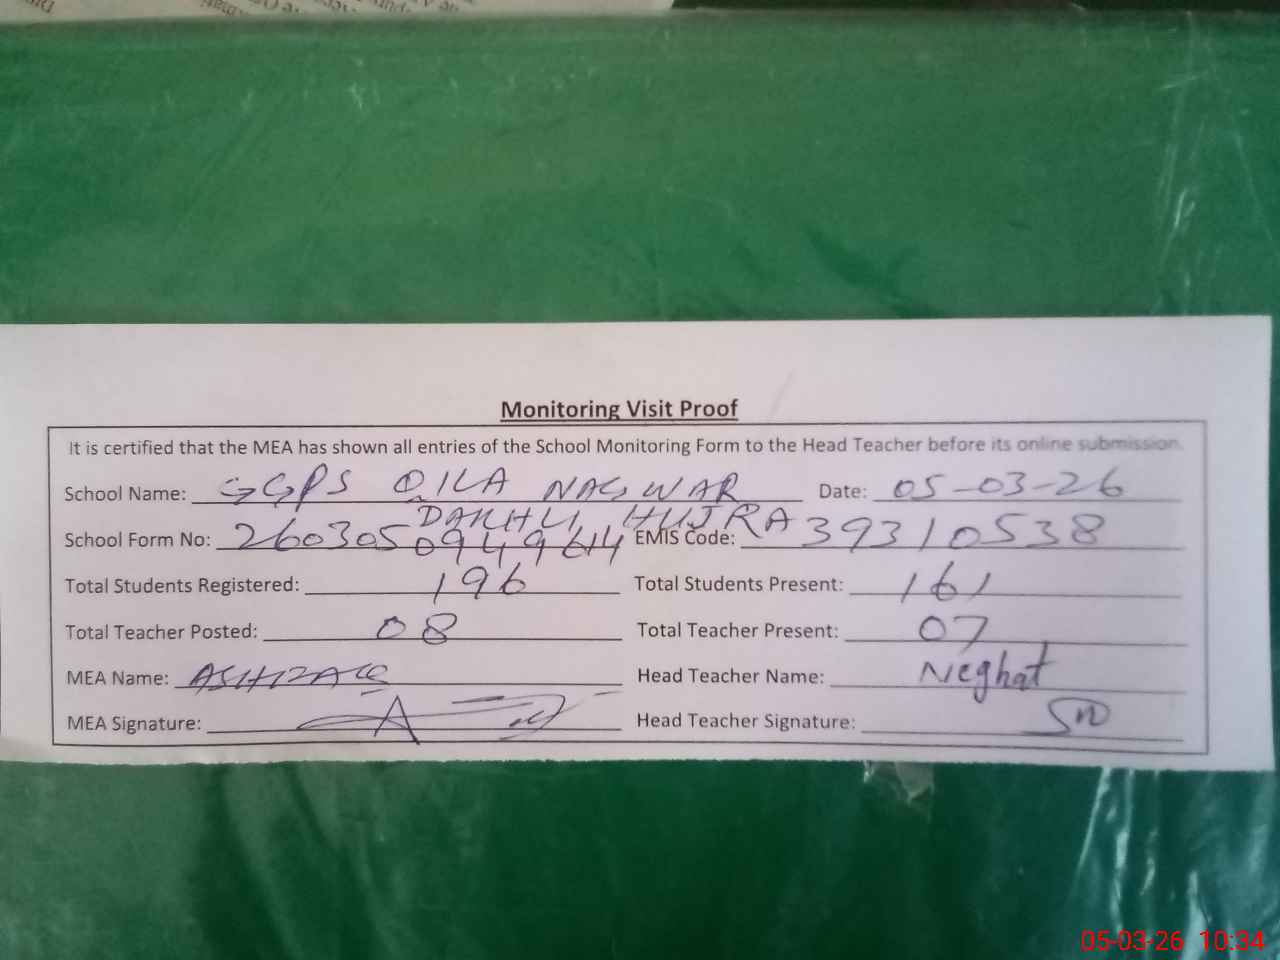 Monitoring Visit Proof
It is certified that the MEA has shown all entries of the School Monitoring Form to the Head Teacher before its online submission.
School Name: GGPS QILA NAGWAR Date: 05-03-26
DAKHLI HUJRA
School Form No: 2603050949614 EMIS Code: 39310538
Total Students Registered: 196 Total Students Present: 161
Total Teacher Posted: 08 Total Teacher Present: 07
MEA Name: ASHFAQ Head Teacher Name: Neghat
MEA Signature: Head Teacher Signature:
05-03-26 10:34